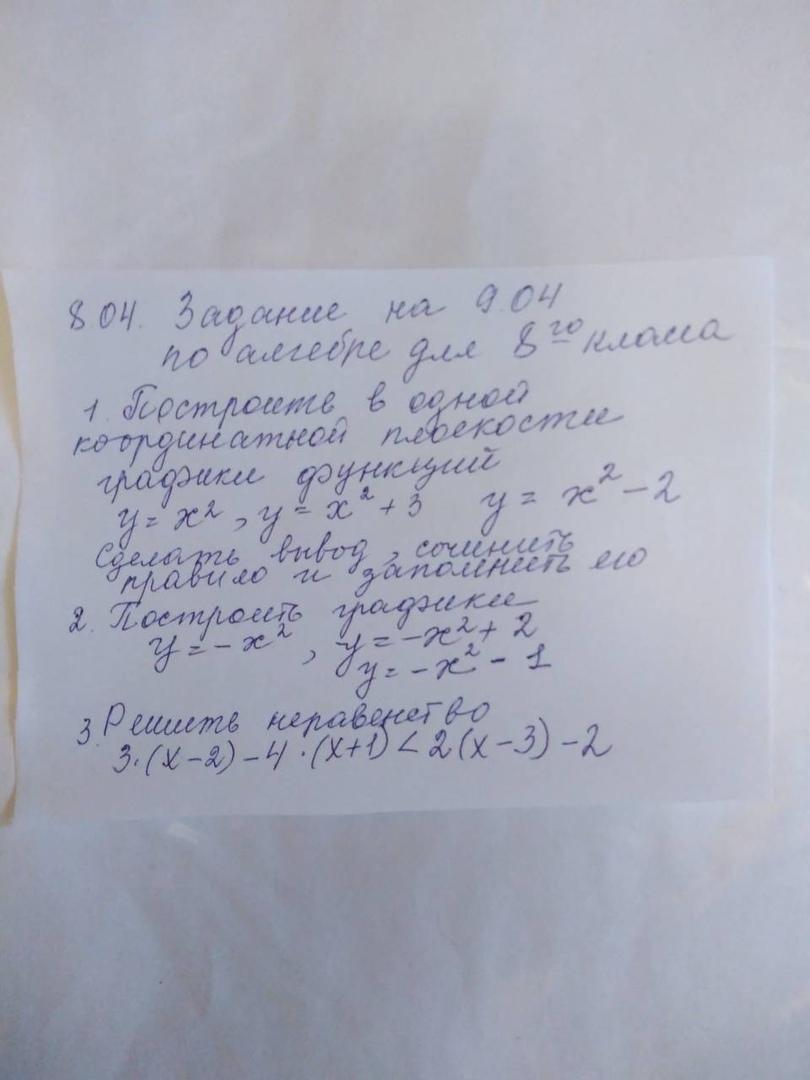 8.04. Задание на 9.04
по алгебре для 8го класса
1. Постройте в одной
координатной плоскости
графики функций
y = x², y = x² + 3 y = x² - 2
Сделать вывод, сочинить
правило и запомнить его
2. Построить графики
y = -x², y = -x² + 2
y = -x² - 1
3. Решить неравенство
3·(x-2)-4·(x+1) < 2(x-3)-2